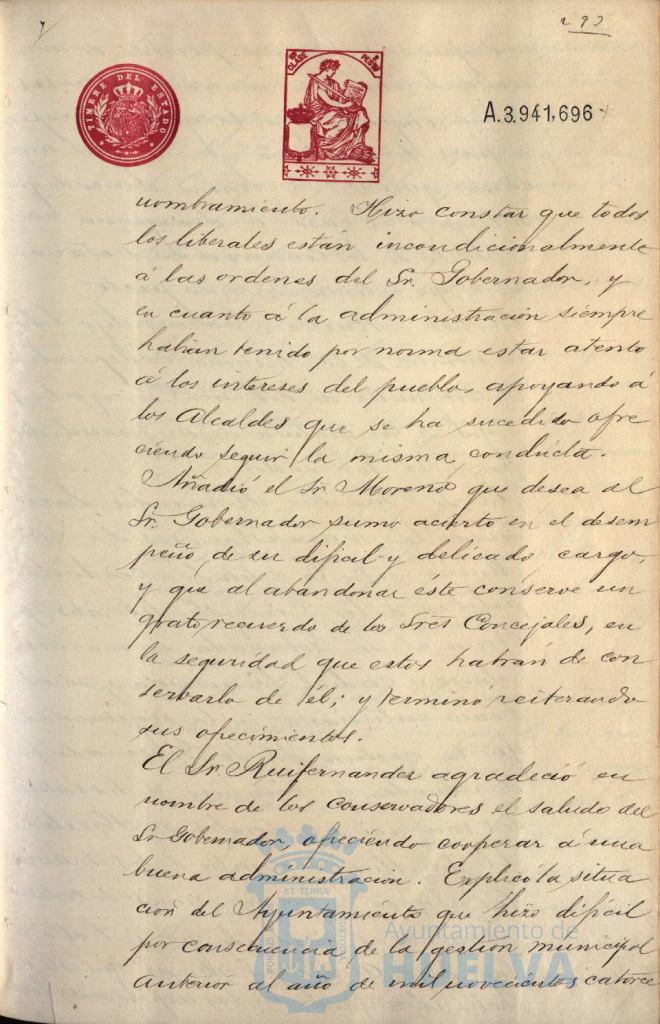 293
TIMBRE DEL ESTADO
CLASE
A.3.941,696
nombramiento. Hizo constar que todos
los liberales están incondicionalmente
á las ordenes del Sr. Gobernador, y
en cuanto á la administración siempre
habian tenido por norma estar atento
á los intereses del pueblo, apoyando á
los Alcaldes que se ha sucedido ofre
ciendo seguir la misma conducta.
Añadió el Sr. Moreno que desea al
Sr. Gobernador sumo acierto en el desem
peño de su dificil y delicado cargo,
y que al abandonar éste conserve un
grato recuerdo de los Sres Concejales, en
la seguridad que estos habrán de con
servarlo de él; y terminó reiterando
sus ofrecimientos.
El Sr. Ruifernandez agradeció en
nombre de los conservadores el saludo del
Sr Gobernador, ofreciendo cooperar á una
buena administración. Explicó la situa
ción del Ayuntamiento que hizo dificil
por consecuencia de la gestion municipal
anterior al año de mil novecientos catorce
ET TERRÆ
Ayuntamiento de
HUELVA